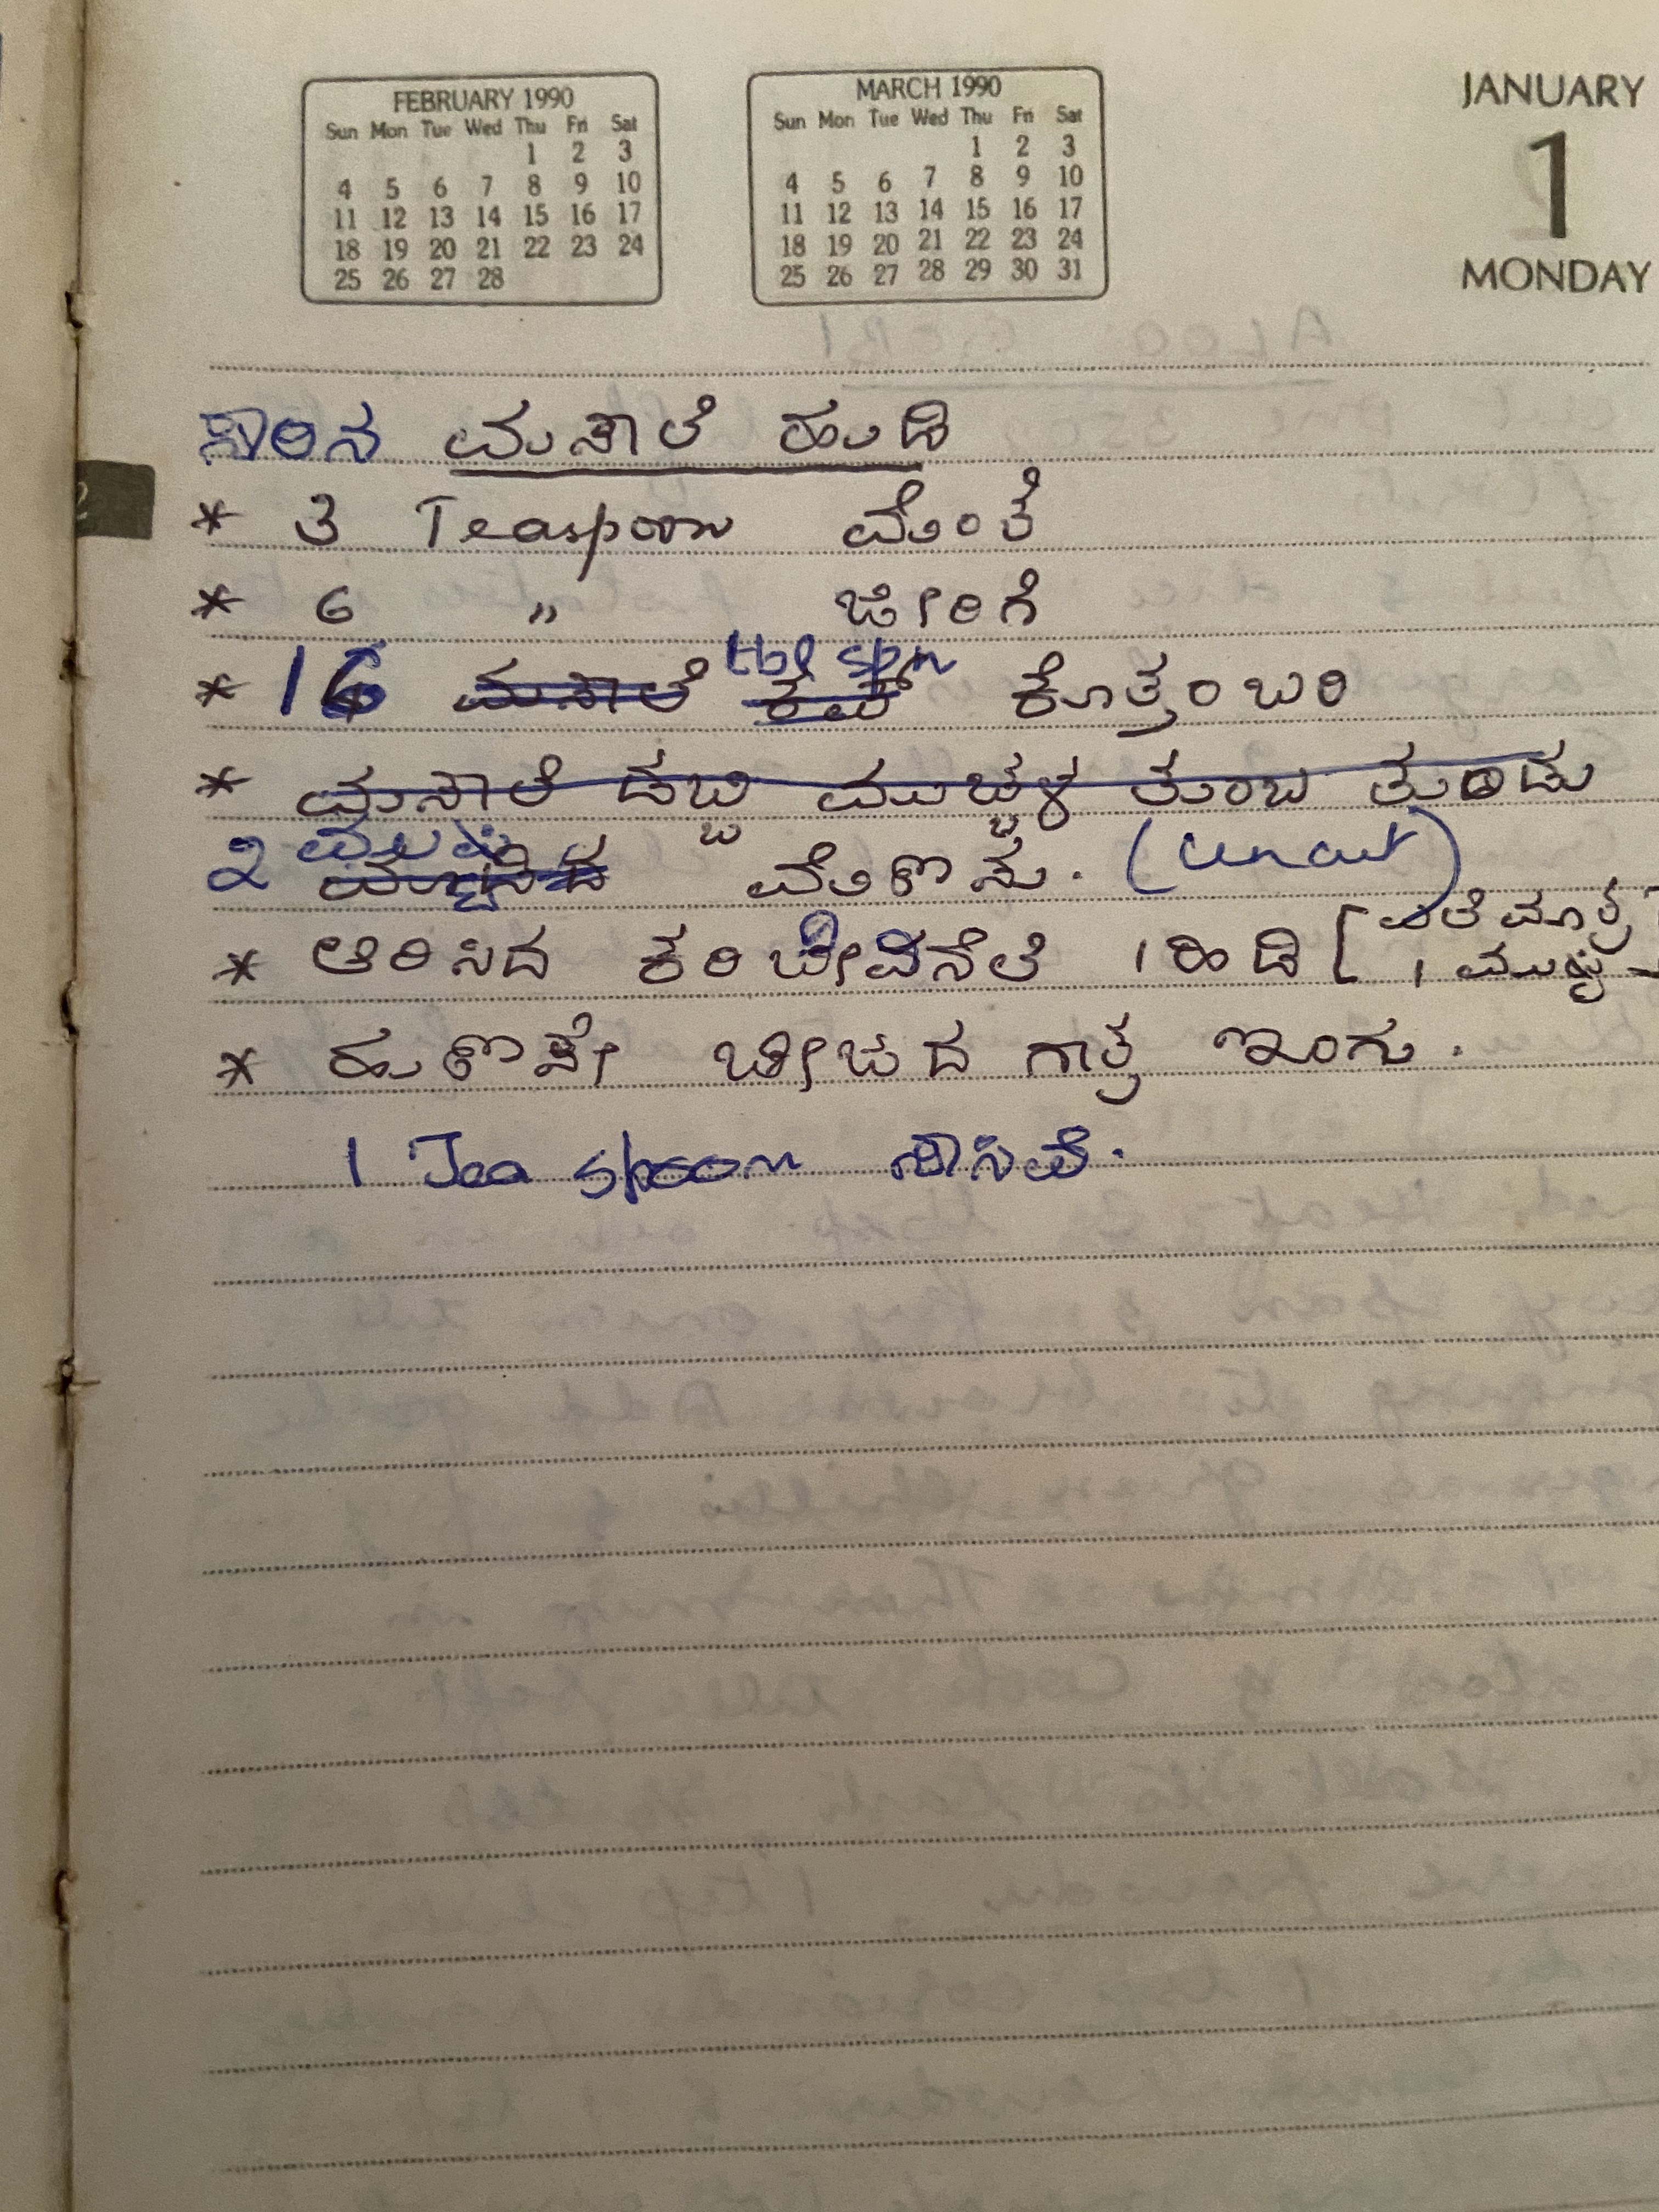 FEBRUARY 1990
Sun Mon Tue Wed Thu Fri Sat
1 2 3
4 5 6 7 8 9 10
11 12 13 14 15 16 17
18 19 20 21 22 23 24
25 26 27 28
MARCH 1990
Sun Mon Tue Wed Thu Fri Sat
1 2 3
4 5 6 7 8 9 10
11 12 13 14 15 16 17
18 19 20 21 22 23 24
25 26 27 28 29 30 31
JANUARY
1
MONDAY
2
ಸಾರಿನ ಮಸಾಲೆ ಹುಡಿ
* 3 Teaspoon ಮೆಂತೆ
* 6 " ಜೀರಿಗೆ
* 16 ಮಸಾಲೆ ಕಪ್ tbl spn ಕೊತ್ತಂಬರಿ
* ಮಸಾಲೆ ಡಬ್ಬಿ ಮುಚ್ಚಳ ತುಂಬ ತುಂಡು
2 ಮುಷ್ಠಿ ಮೆಣಸು. (uncut)
* ಆರಿಸಿದ ಕರಿಬೇವಿನೆಲೆ 1 ಹಿಡಿ [ಎಲೆ ಮಾತ್ರ
1 ಮುಷ್ಠಿ]
* ಹುಣಸೇ ಬೀಜದ ಗಾತ್ರ ಇಂಗು.
1 Tea spoon ಸಾಸಿವೆ.